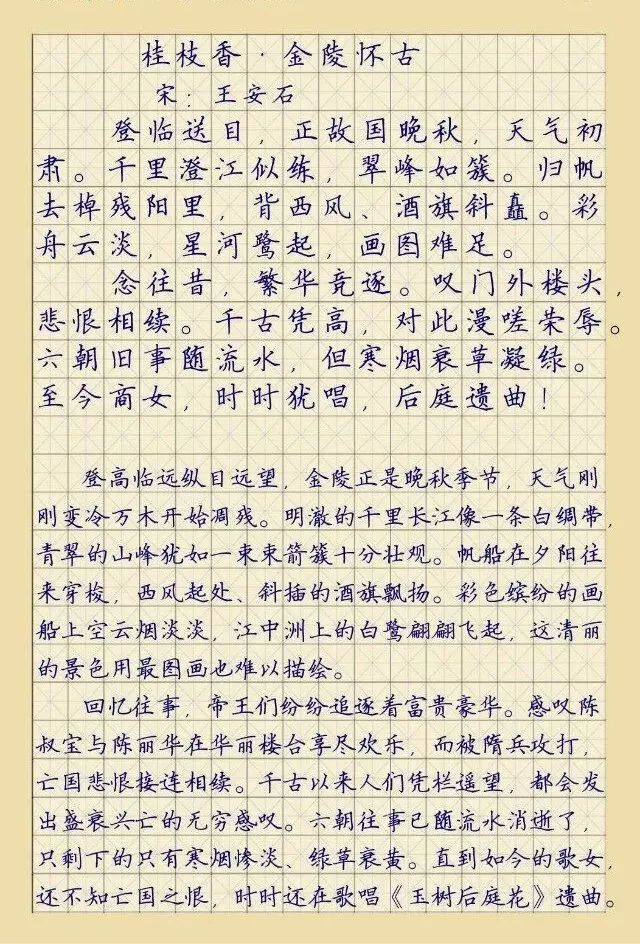 桂枝香·金陵怀古
宋：王安石
登临送目，正故国晚秋，天气初
肃。千里澄江似练，翠峰如簇。归帆
去棹残阳里，背西风、酒旗斜矗。彩
舟云淡，星河鹭起，画图难足。
念往昔，繁华竞逐。叹门外楼头，
悲恨相续。千古凭高，对此漫嗟荣辱。
六朝旧事随流水，但寒烟衰草凝绿。
至今商女，时时犹唱，后庭遗曲！
登高临远纵目远望，金陵正是晚秋季节，天气刚
刚变冷万木开始凋残。明澈的千里长江像一条白绸带，
青翠的山峰犹如一束束箭簇十分壮观。帆船在夕阳往
来穿梭，西风起处、斜插的酒旗飘扬。彩色缤纷的画
船上空云烟淡淡，江中洲上的白鹭翩翩飞起，这清丽
的景色用最图画也难以描绘。
回忆往事，帝王们纷纷追逐着富贵豪华。感叹陈
叔宝与陈丽华在华丽楼台享尽欢乐，而被隋兵攻打，
亡国悲恨接连相续。千古以来人们凭栏遥望，都会发
出盛衰兴亡的无穷感叹。六朝往事已随流水消逝了，
只剩下的只有寒烟惨淡、绿草衰黄。直到如今的歌女，
还不知亡国之恨，时时还在歌唱《玉树后庭花》遗曲。